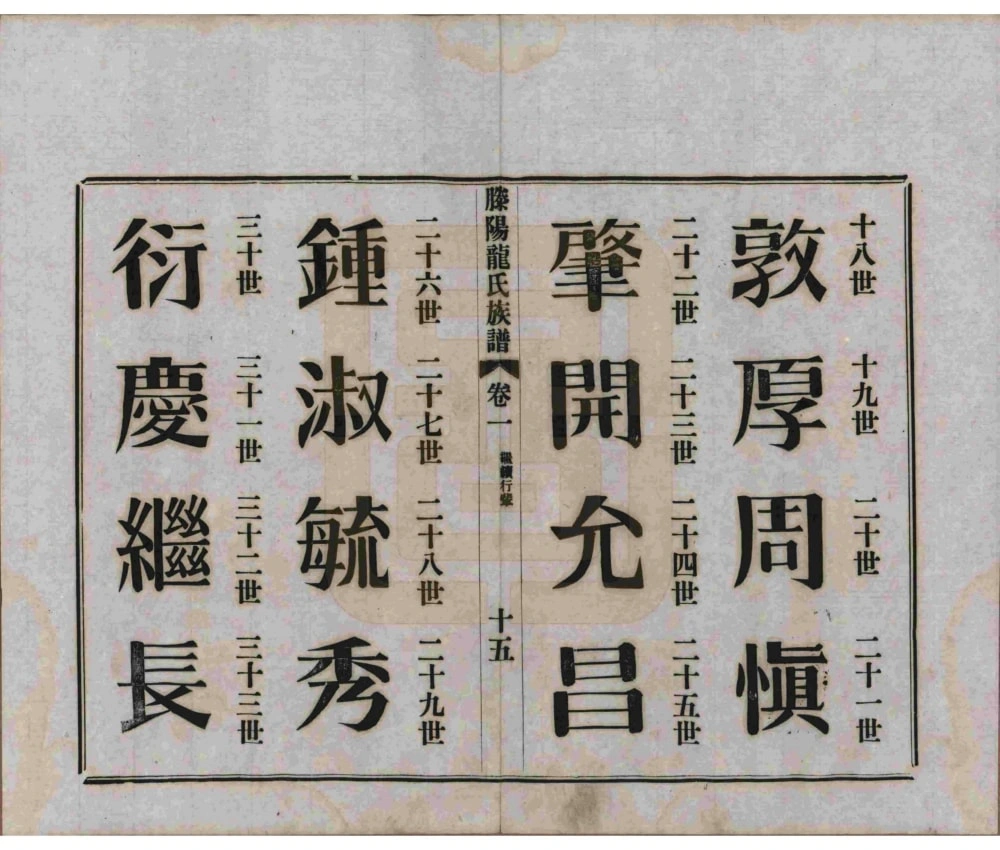 十八世 十九世 二十世 二十一世
敦厚周慎
二十二世 二十三世 二十四世 二十五世
肇開允昌
滕陽龍氏族譜 卷一 繼續行輩 十五
二十六世 二十七世 二十八世 二十九世
鍾淑毓秀
三十世 三十一世 三十二世 三十三世
衍慶繼長